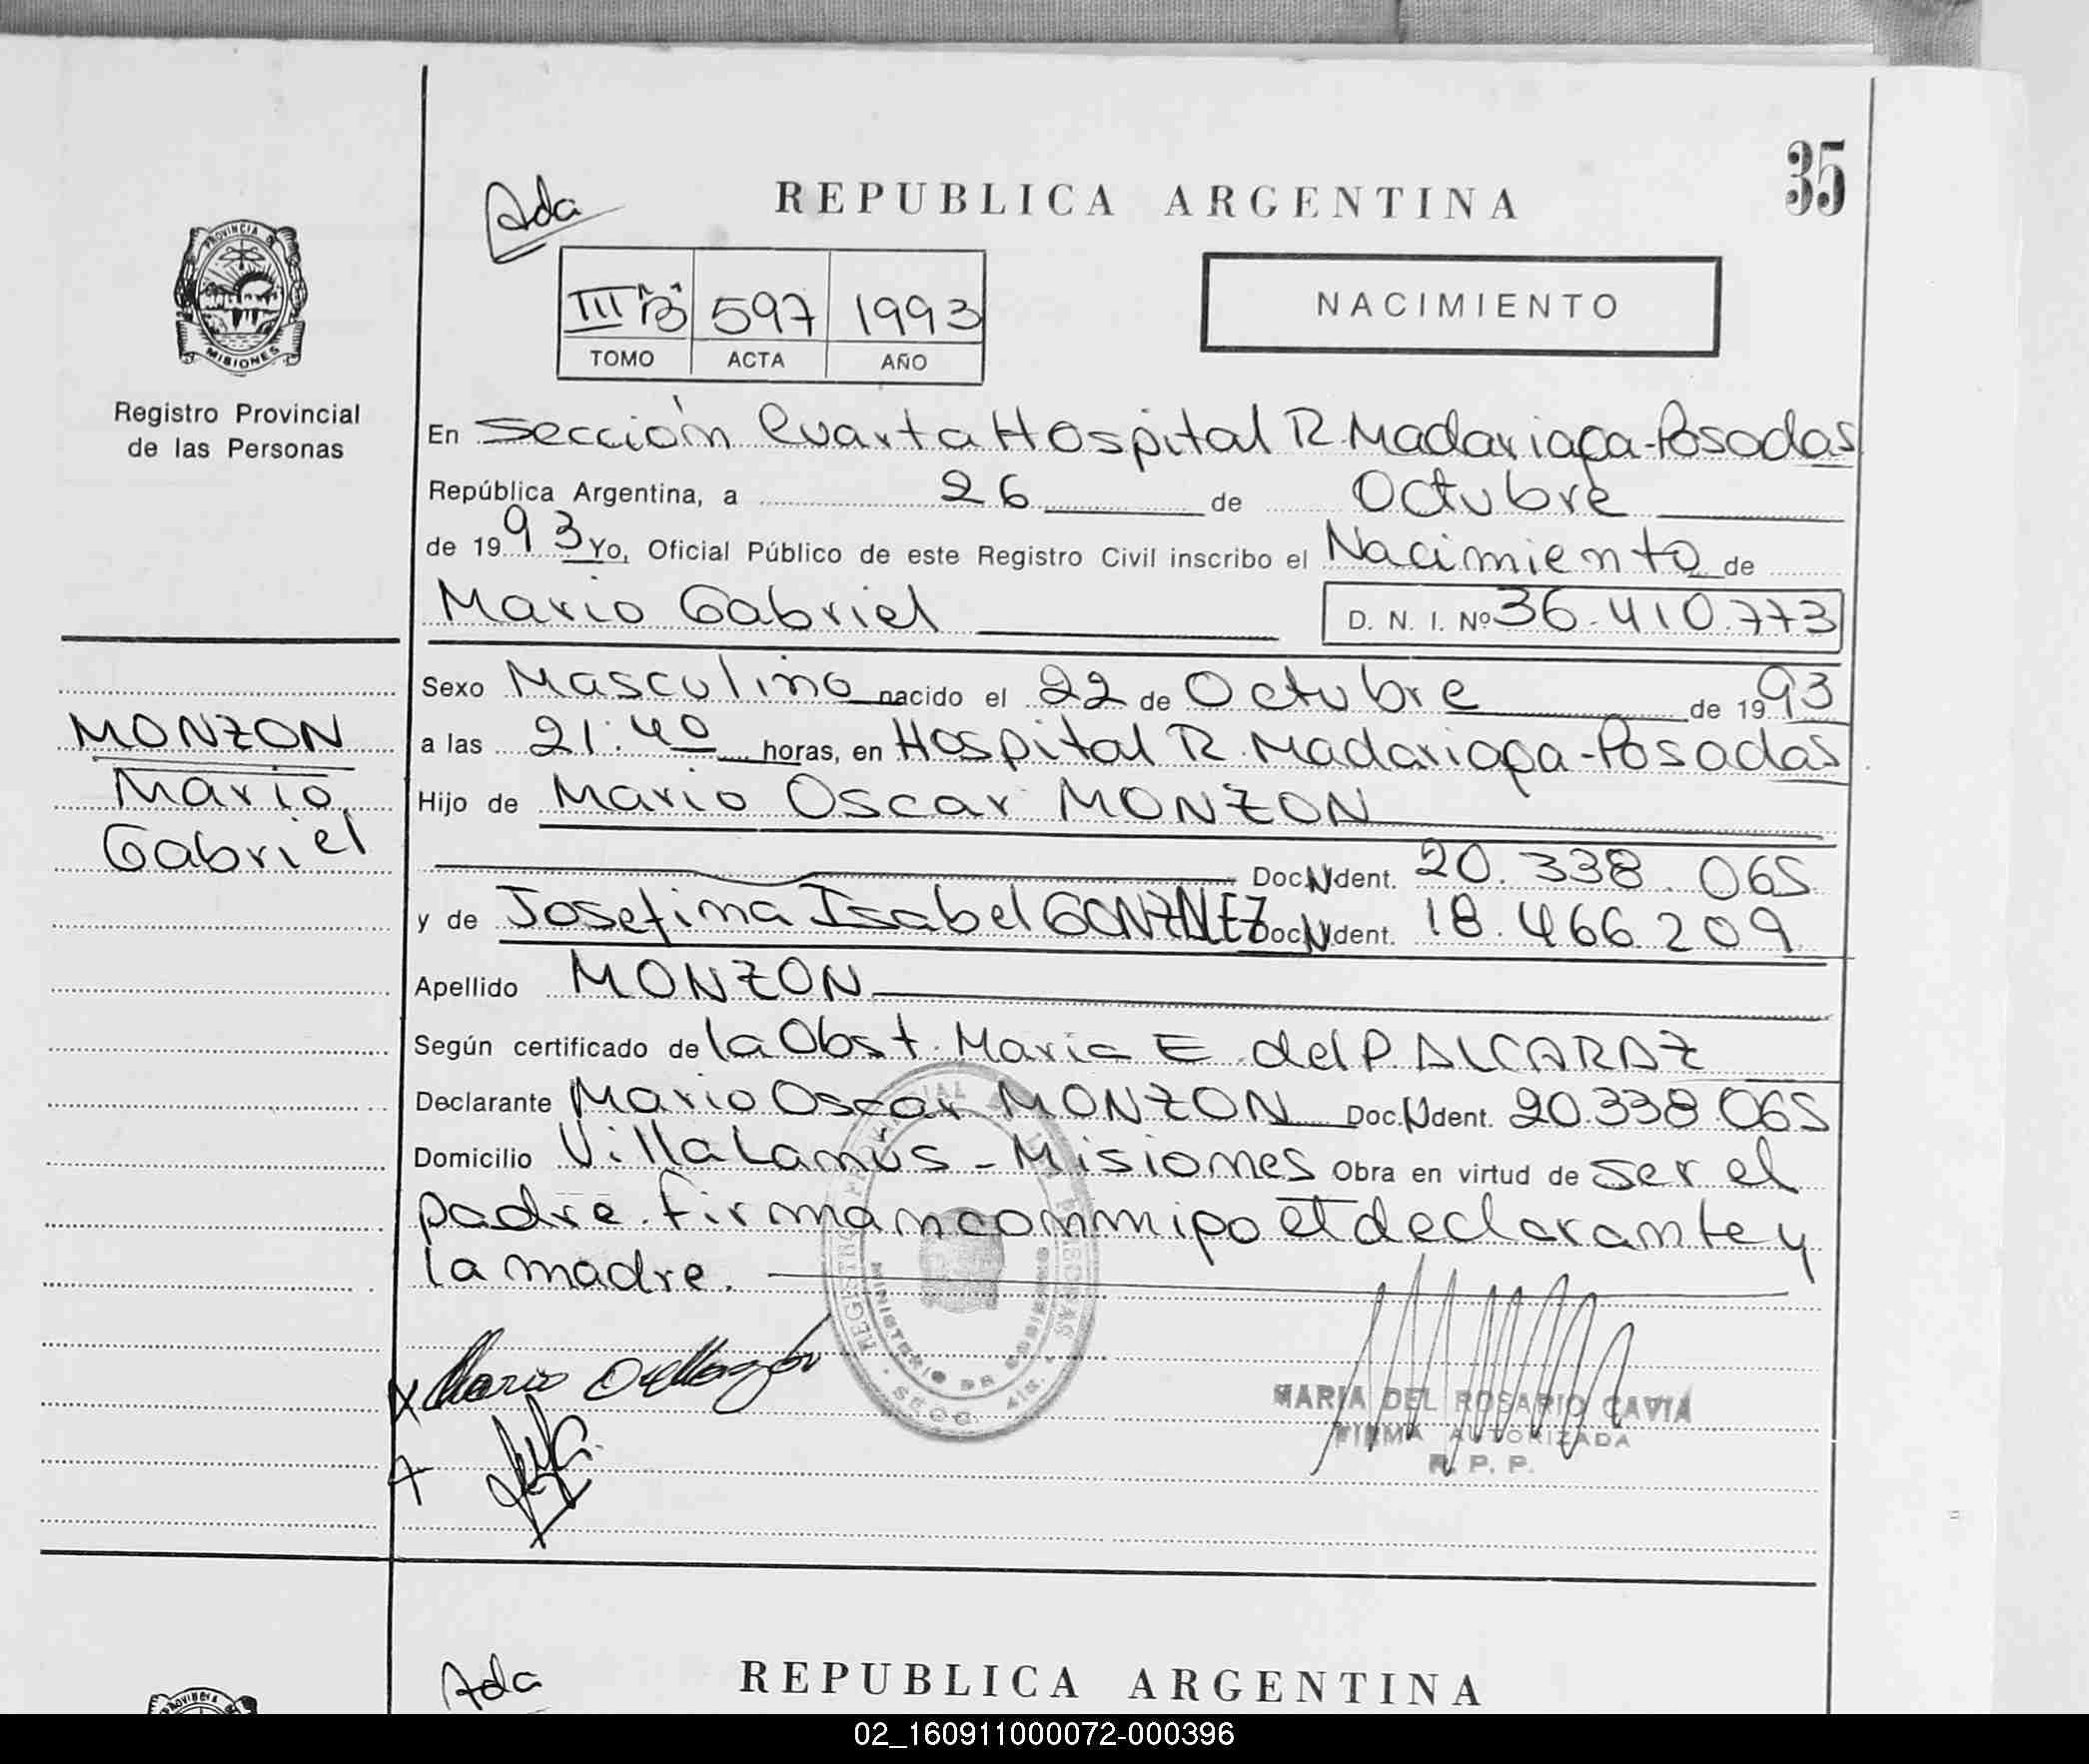 35
Ada
REPUBLICA ARGENTINA
PROVINCIA DE
MISIONES
III "B" 597 1993
TOMO ACTA AÑO
NACIMIENTO
Registro Provincial
de las Personas
En Sección Cuarta Hospital R. Madariaga-Posadas
República Argentina, a 26 de Octubre
de 1993 Yo, Oficial Público de este Registro Civil inscribo el Nacimiento de
Mario Gabriel D. N. I. Nº 36.410.773
Sexo Masculino nacido el 22 de Octubre de 1993
MONZON
Mario
Gabriel
a las 21:40 horas, en Hospital R. Madariaga-Posadas
Hijo de Mario Oscar MONZON
Doc. N Ident. 20.338.065
y de Josefina Isabel Doc. N Ident. 18.466.209
Apellido MONZON
Según certificado de la Obst. Maria E. del P. ALCARAZ
Declarante Mario Oscar MONZON Doc. N Ident. 20.338.065
Domicilio Villa Lanús - Misiones Obra en virtud de ser el
padre. firman conmigo el declarante y
la madre.
REGISTRO PROVINCIAL DE LAS PERSONAS
MINISTERIO DE GOBIERNO
MARIA DEL ROSARIO CAVIA
FIRMA AUTORIZADA
R. P. P.
Ada
REPUBLICA ARGENTINA
PROVINCIA
02_160911000072-000396